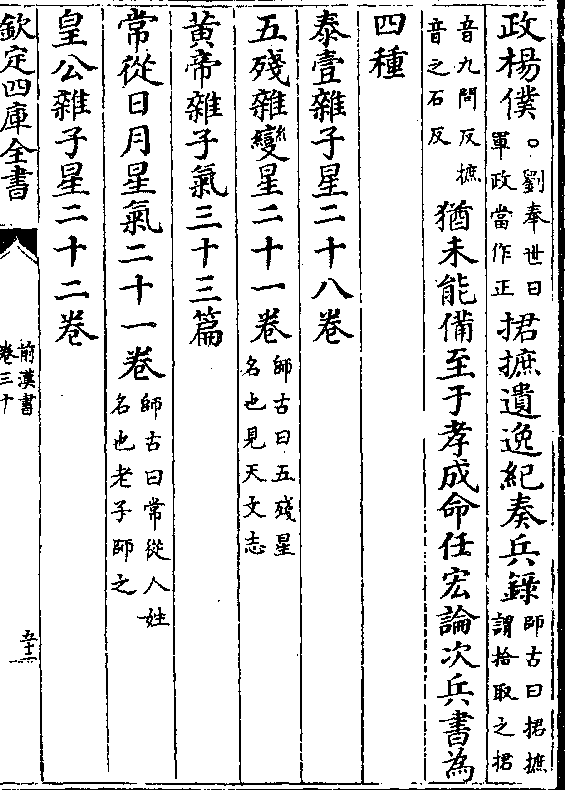 政楊僕○劉奉世曰軍政當作正捃摭遺逸紀奏兵錄師古曰捃摭謂拾取之捃
音九問反摭音之石反猶未能備至于孝成命任宏論次兵書為
四種
泰壹雜子星二十八卷
五殘雜變星二十一卷師古曰五殘星名也見天文志
黃帝雜子氣三十三篇
常從日月星氣二十一卷師古曰常從人姓名也老子師之
皇公雜子星二十二卷
欽定四庫全書
前漢書
卷三十